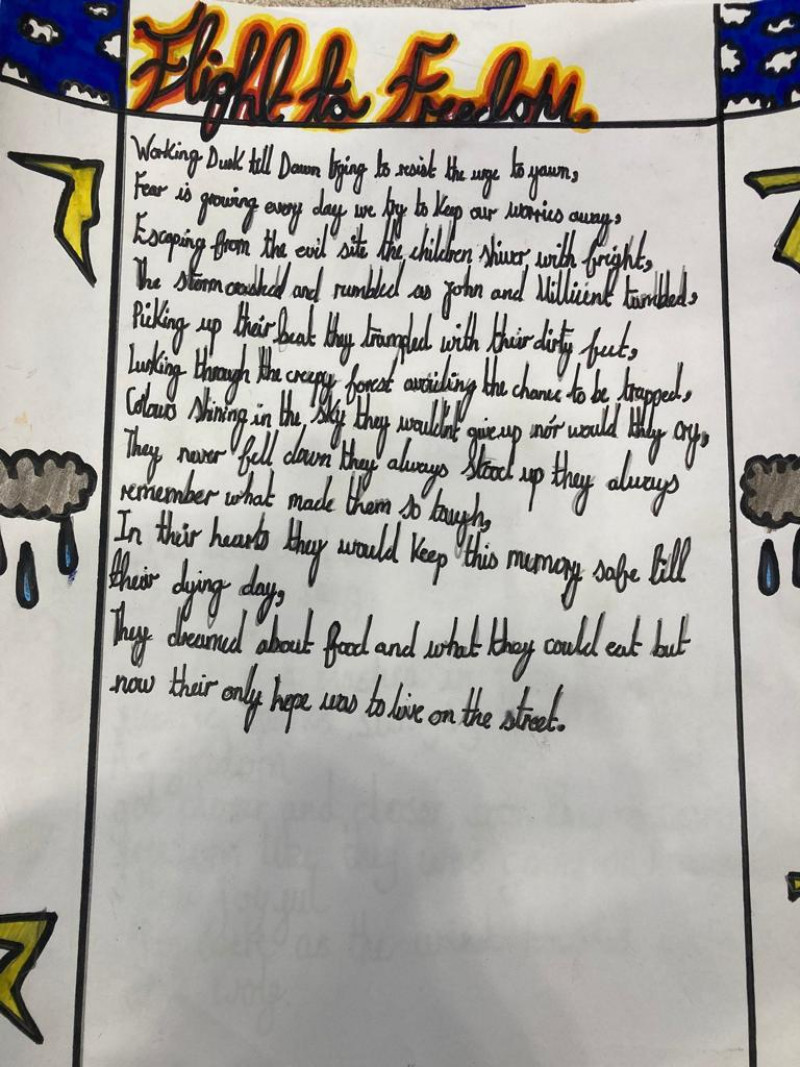 Flight to Freedom.
Working Dusk till Dawn trying to resist the urge to yawn,
Fear is growing every day we try to keep our worries away,
Escaping from the evil site the children shiver with fright,
The storm crashed and rumbled as John and Millicent tumbled,
Picking up their beat they trampled with their dirty feet,
Lurking through the creepy forest avoiding the chance to be trapped,
Colours shining in the sky they wouldn't give up nor would they cry,
They never fell down they always stood up they always
remember what made them so tough,
In their hearts they would keep this memory safe till
their dying day,
They dreamed about food and what they could eat but
now their only hope was to live on the street.